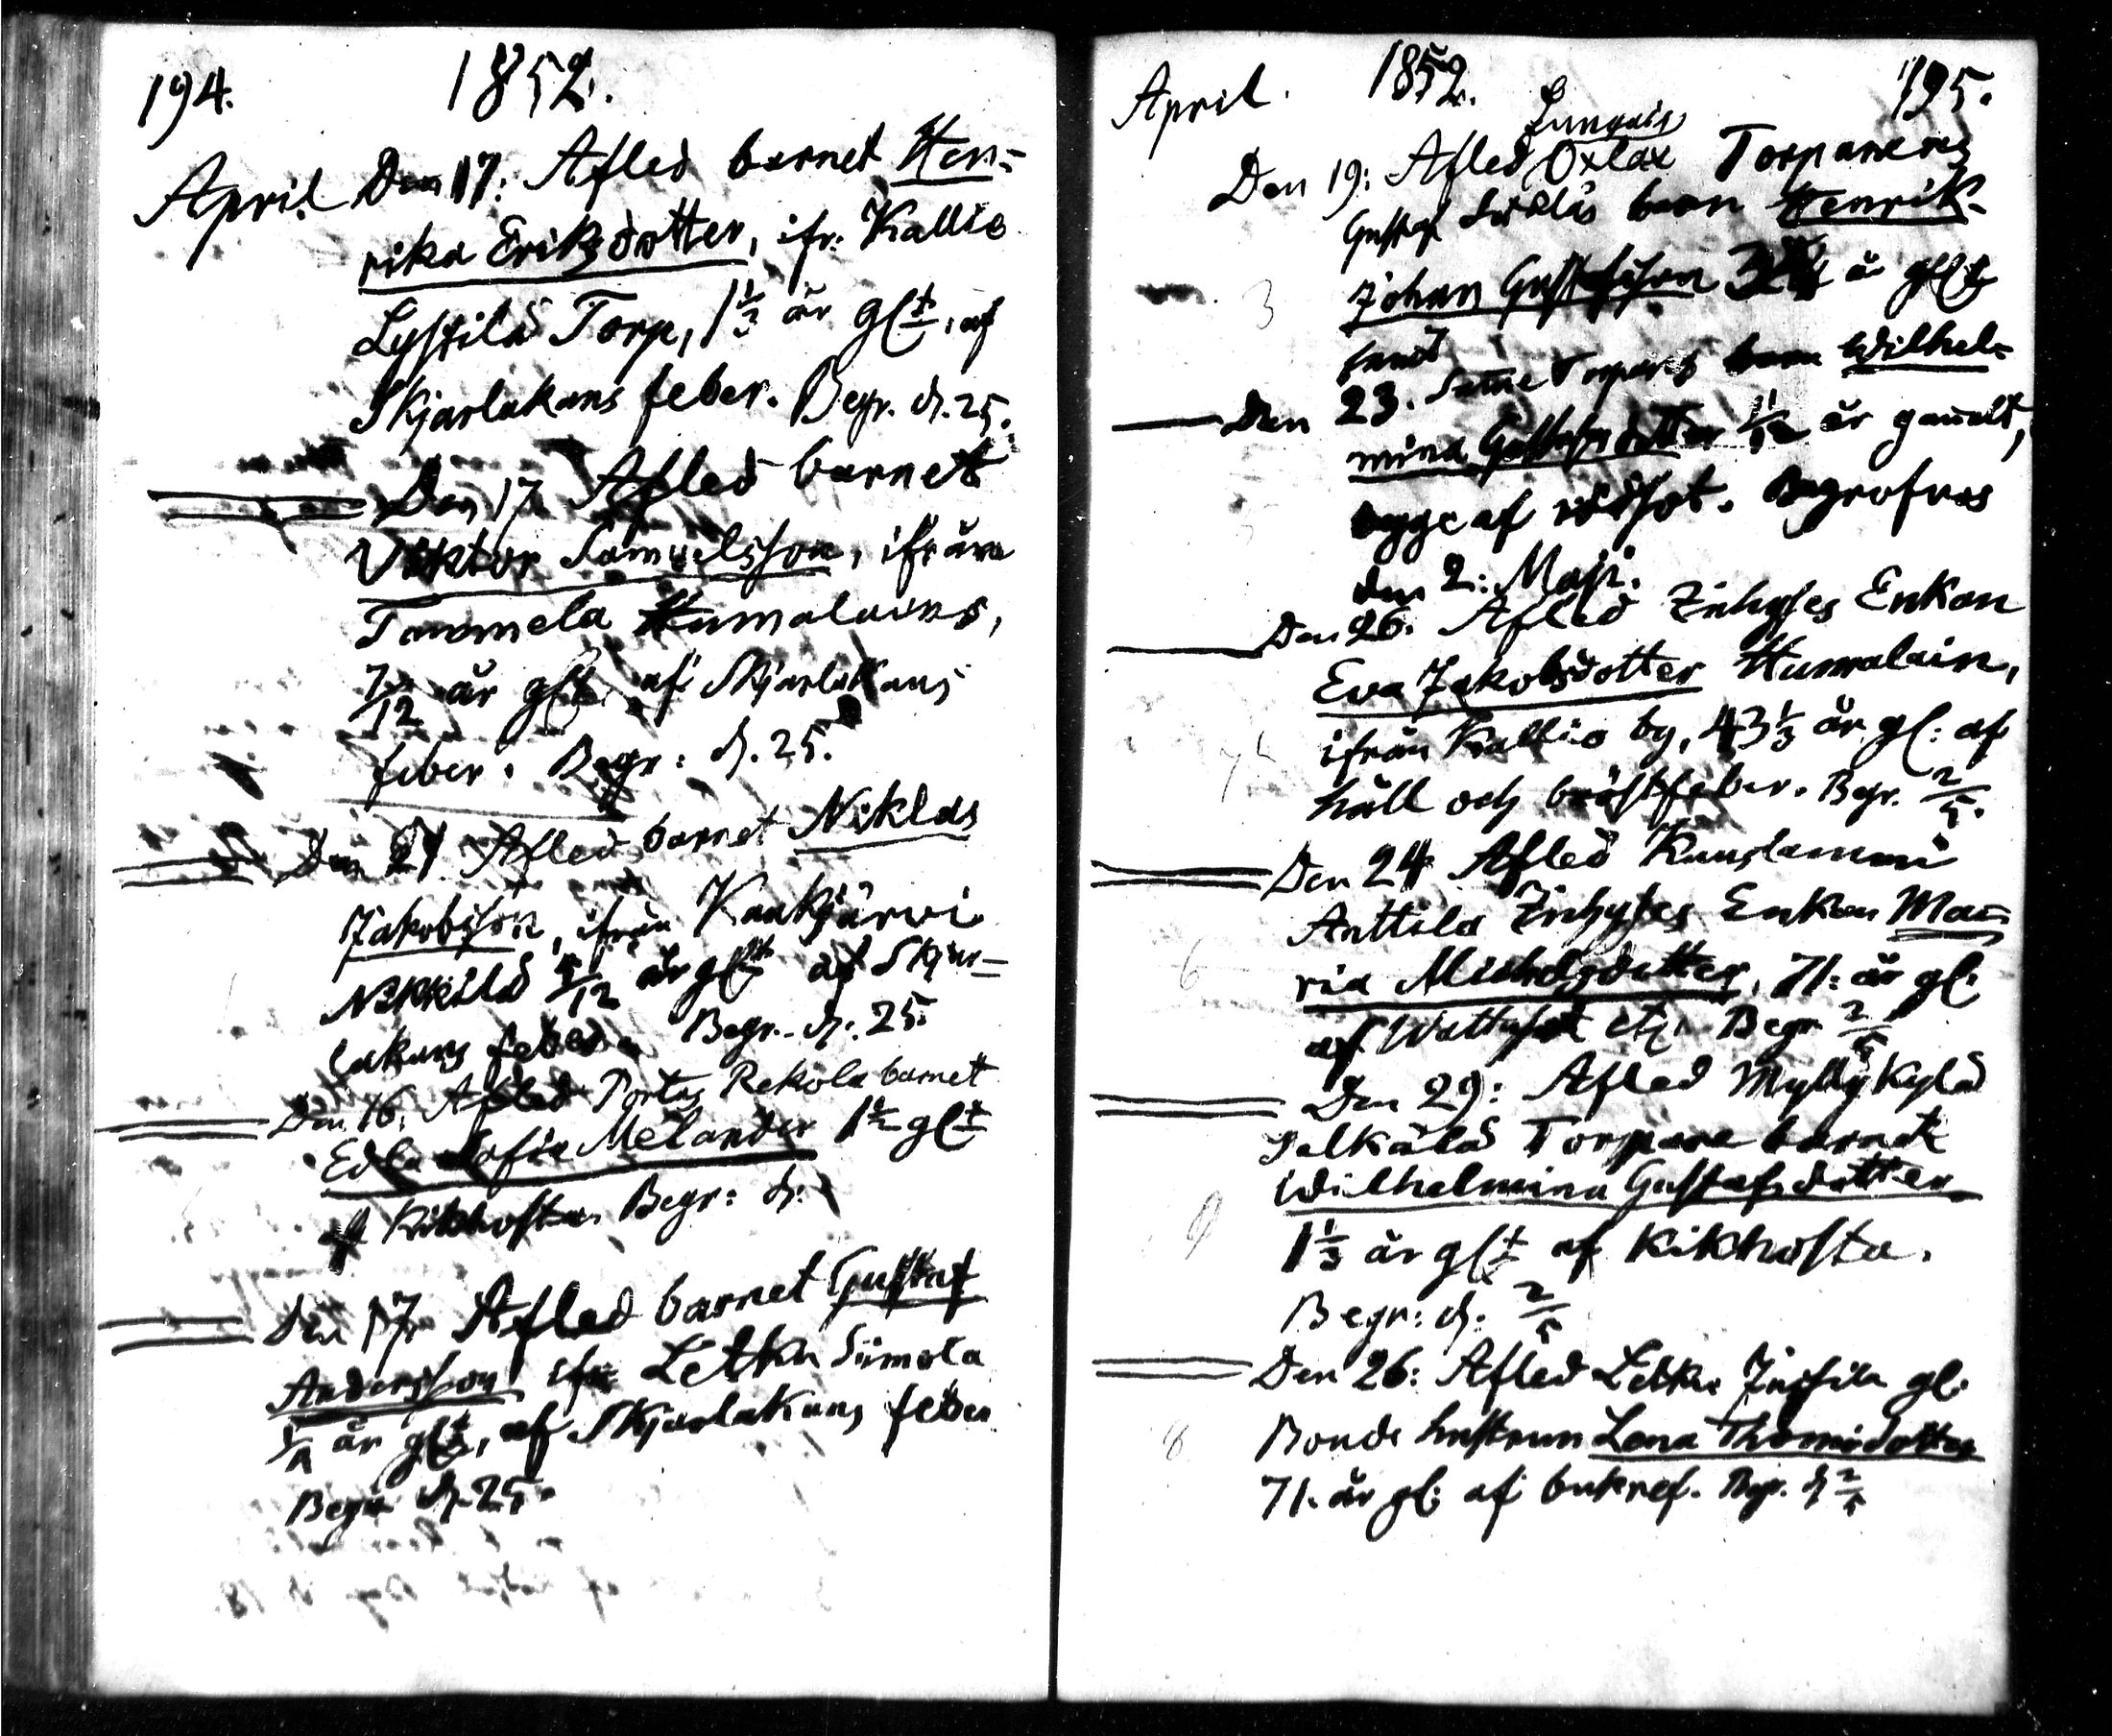 194. 1852.
April Den 17: Afled barnet Hen=
rika Eriksdotter, ifr: Kallio
Torp, 1 1/3 år glt, af
Skjarlakans feber. Begr. d. 25.
Den 17 Afled barnet
Viktor Samuelsson, ifrån
Tammela Humalains,
7/12 år glt af Skjarlakans
feber. Begr: d. 25.
Den 21 Afled barnet Niklas
Jakobsson, ifrån Kaukjärwi
Nikkilä /12 år glt af Skjar-
lakans feber Begr. d: 25.
Den 16: Afled Portas Rekola barnet
Edla Sofia Melander 1 1/2 glt
af Kikhosta. Begr: d:
Den 17. Afled barnet Gustaf
Andersson ifr Letku Simola
år glt, af Skjarlakans feber
Begr d. 25.
April. 1852. 195.
Den 19: Afled Torparens
Gustaf barn Henrik
Johan Gustafsson 3 år glt
samt
Den 23. Torpares barn Wilhel=
mina Gustafsdotter 1/12 år gamalt,
begge af rödsot. Begrofvos
den 2: Maji.
Den 26. Afled Inhyses Enkan
Eva Jakobsdotter Humalain,
ifrån Kallio by, 43 1/3 år gl: af
håll och bröstfeber. Begr. 2/5.
Den 24 Afled Kuuslammi
Anttila Inhyses Enkan Ma=
ria Michelsdotter, 71: år gl.
af Wattusot etc. Begr 2/5
Den 29: Afled Myllykylä
Jalkälä Torpare barnet
Wilhelmina Gustafsdotter
1 1/3 år glt af Kikhosta.
Begr: d: 2/5
Den 26: Afled Letku Jussila gl.
Bonde hustrun Lena Thomasdotter
71. år gl: af bukref. Begr. d 2/5